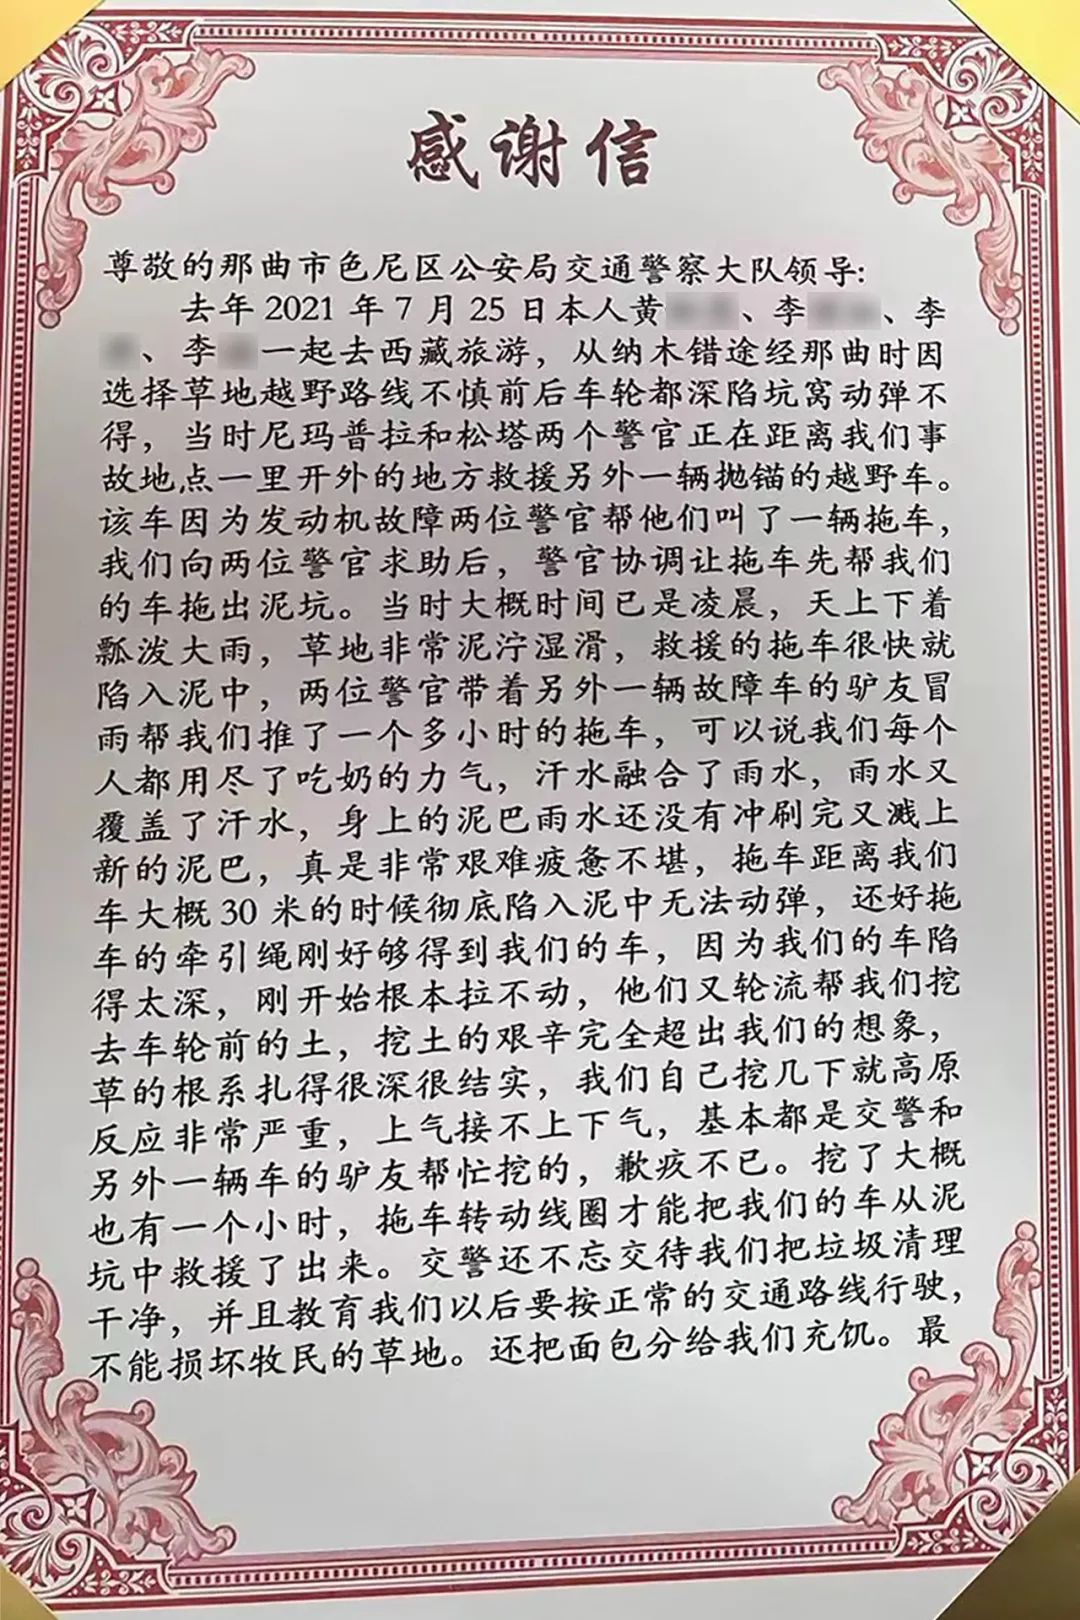 感谢信
尊敬的那曲市色尼区公安局交通警察大队领导:
去年2021年7月25日本人黄、李、李
、李一起去西藏旅游，从纳木错途经那曲时因
选择草地越野路线不慎前后车轮都深陷坑窝动弹不
得，当时尼玛普拉和松塔两个警官正在距离我们事
故地点一里开外的地方救援另外一辆抛锚的越野车。
该车因为发动机故障两位警官帮他们叫了一辆拖车，
我们向两位警官求助后，警官协调让拖车先帮我们
的车拖出泥坑。当时大概时间已是凌晨，天上下着
瓢泼大雨，草地非常泥泞湿滑，救援的拖车很快就
陷入泥中，两位警官带着另外一辆故障车的驴友冒
雨帮我们推了一个多小时的拖车，可以说我们每个
人都用尽了吃奶的力气，汗水融合了雨水，雨水又
覆盖了汗水，身上的泥巴雨水还没有冲刷完又溅上
新的泥巴，真是非常艰难疲惫不堪，拖车距离我们
车大概30米的时候彻底陷入泥中无法动弹，还好拖
车的牵引绳刚好够得到我们的车，因为我们的车陷
得太深，刚开始根本拉不动，他们又轮流帮我们挖
去车轮前的土，挖土的艰辛完全超出我们的想象，
草的根系扎得很深很结实，我们自己挖几下就高原
反应非常严重，上气接不上下气，基本都是交警和
另外一辆车的驴友帮忙挖的，歉疚不已。挖了大概
也有一个小时，拖车转动线圈才能把我们的车从泥
坑中救援了出来。交警还不忘交待我们把垃圾清理
干净，并且教育我们以后要按正常的交通路线行驶，
不能损坏牧民的草地。还把面包分给我们充饥。最